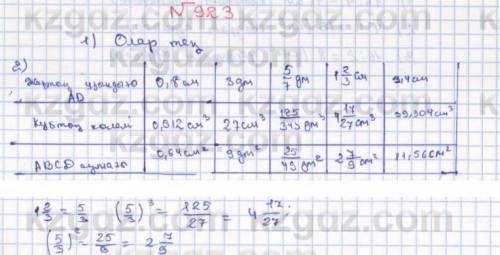 №923
1) Олар тең
2)
Жақтың ұзындығы AD | 0,8 см | 3 дм | 5/7 дм | 1 2/3 см | 3,4 см
Кубтың көлемі | 0,512 см³ | 27 см³ | 125/343 дм³ | 4 17/27 см³ | 39,304 см³
ABCD ауданы | 0,64 см² | 9 дм² | 25/49 дм² | 2 7/9 см² | 11,56 см²
1 2/3 = 5/3 (5/3)³ = 125/27 = 4 17/27;
(5/3)² = 25/9 = 2 7/9
kzgaz.com